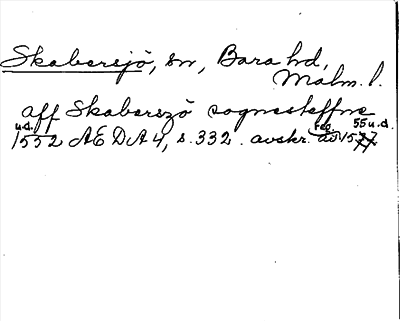 Skabersjö, sn, Bara hd,
Malm. l.
aff Skaberszö sognesteffne
u.d. 1552 AEDA 4, s. 332. avskr. reg. av 1555 u.d.